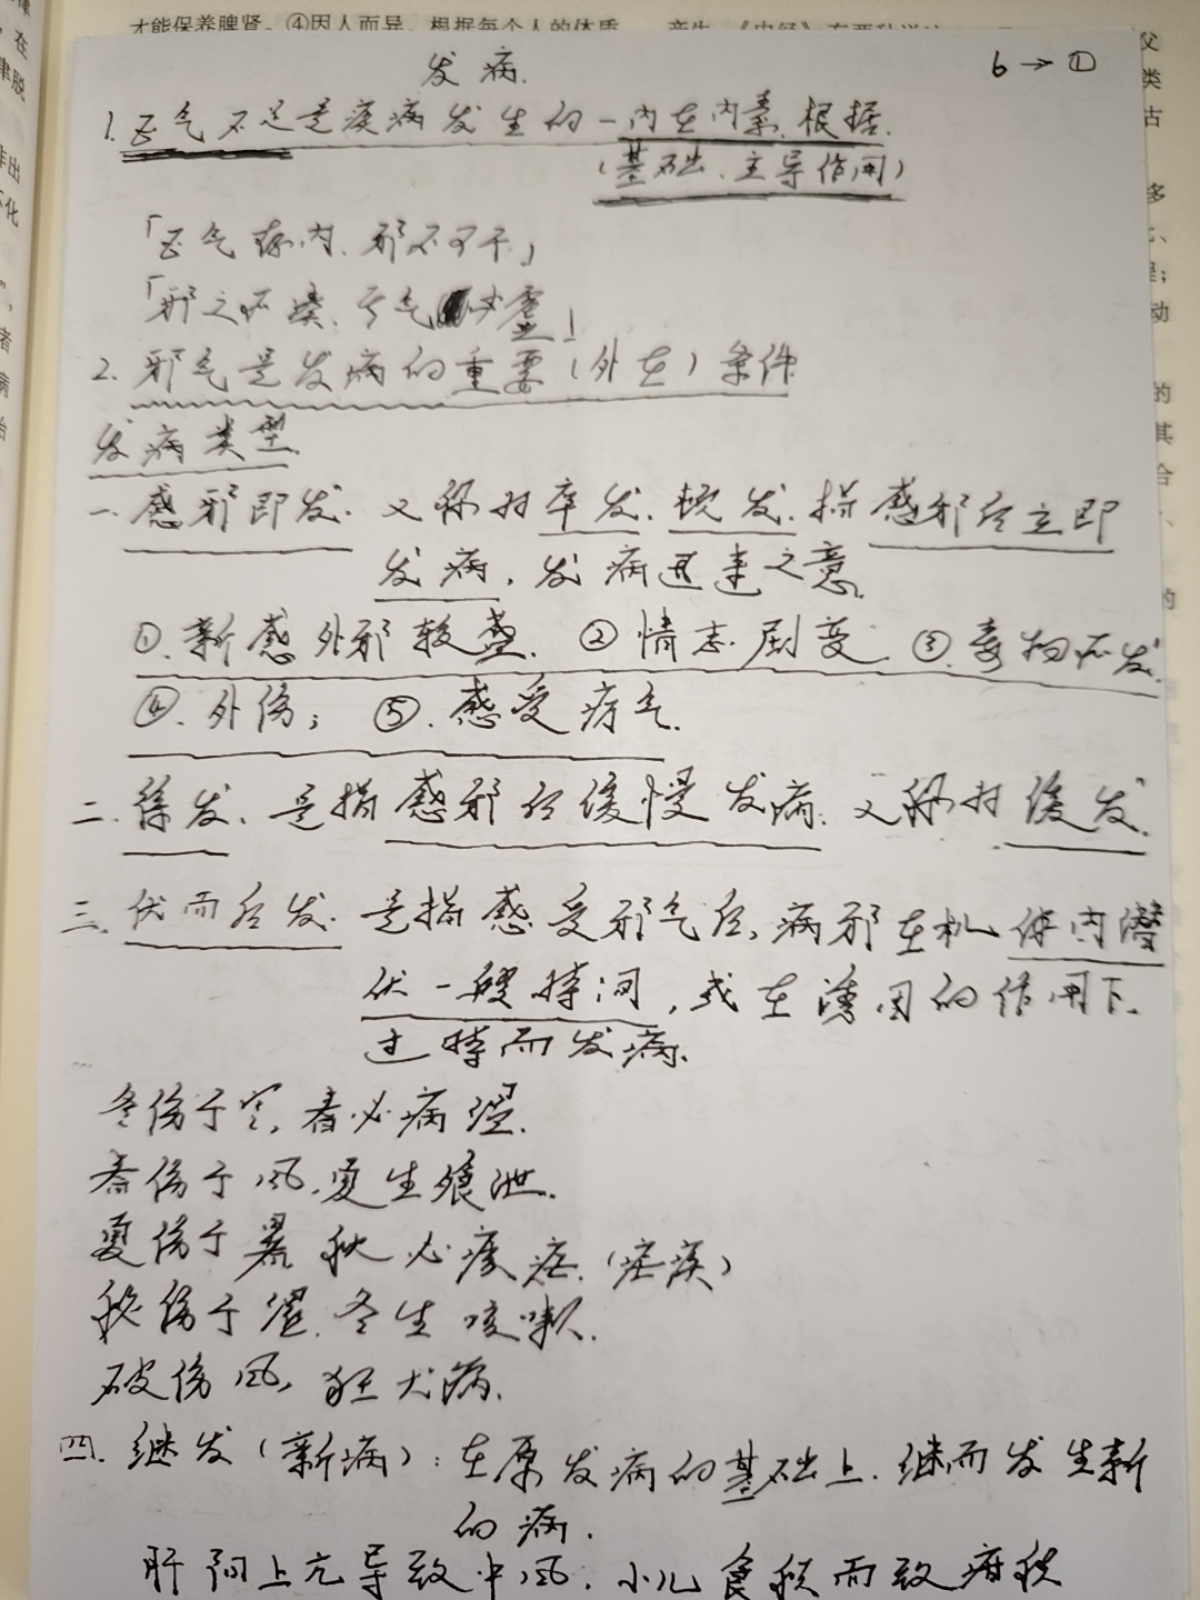 才能保养脾肾。④因人而异。根据每个人的体质
发病.
6→①
1.正气不足是疾病发生的一内在内素.根据.
(基础.主导作用)
「正气存内.邪不可干」
「邪之所凑.亏气必虚」
2.邪气是发病的重要(外在)条件
发病类型.
一.感邪即发.又称对卒发.顿发.指感邪后立即
发病.发病迅速之意.
①.新感外邪较盛.②情志剧变.③.毒物所发.
④.外伤;⑤.感受疠气.
二.徐发.是指感邪后缓慢发病.又称对缓发.
三.伏而后发.是指感受邪气后,病邪在机体内潜
伏一段時间,或在诱因的作用下.
过時而发病.
冬伤于寒,春必病温.
春伤于风,夏生飧泄.
夏伤于暑秋必痎疟.(疟疾)
秋伤于湿.冬生咳嗽.
破伤风,狂犬病.
四.继发(新病):在原发病的基础上.继而发生新
的病.
肝阳上亢导致中风.小儿食积而致疳积